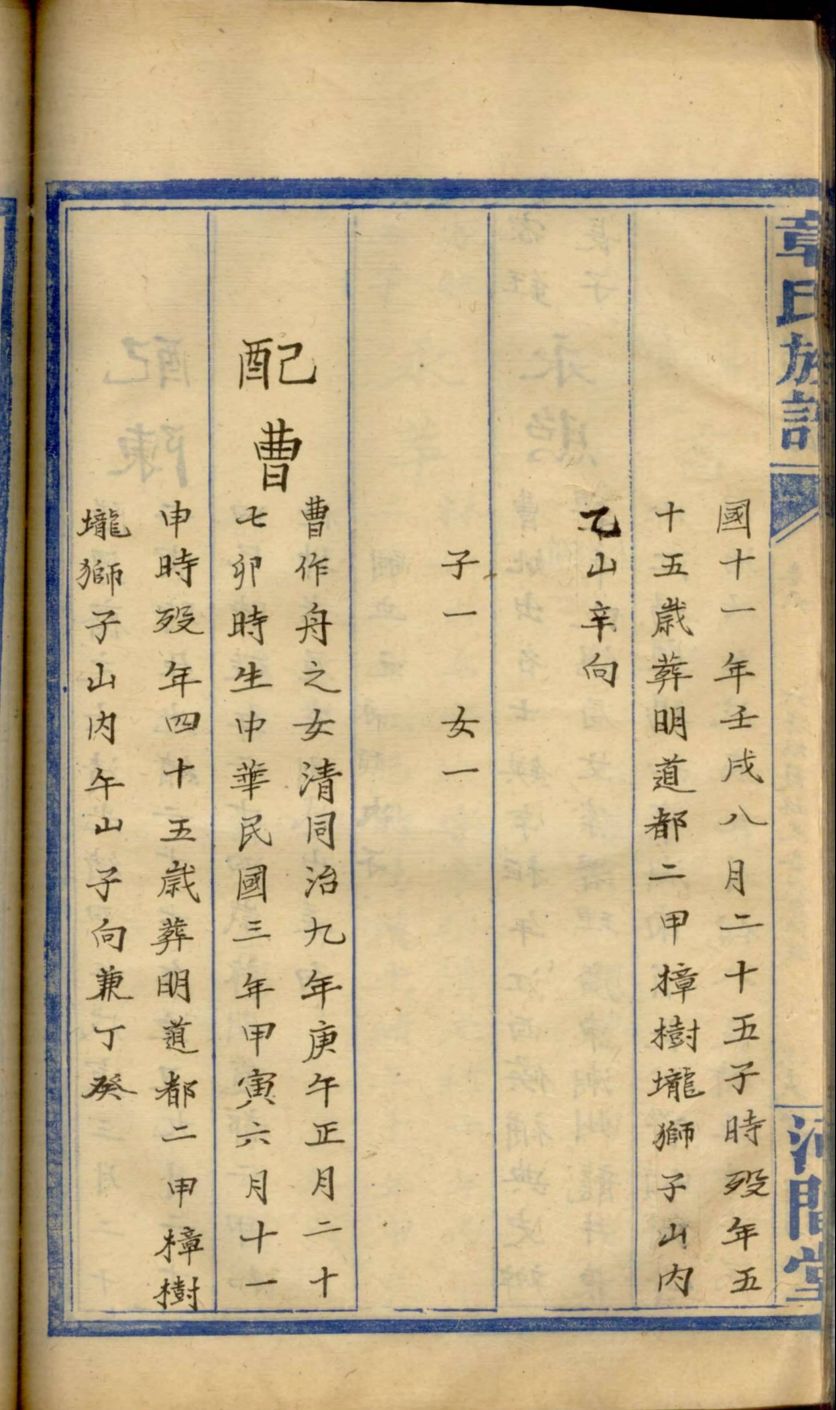 章氏族譜
河間堂
國十一年壬戌八月二十五子時歿年五
十五歲葬明道都二甲樟樹壠獅子山内
乙山辛向
子一 女一
配曹
曹作舟之女清同治九年庚午正月二十
七卯時生中華民國三年甲寅六月十一
申時歿年四十五歲葬明道都二甲樟樹
壠獅子山内午山子向兼丁癸